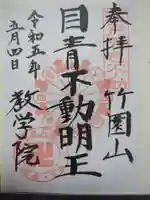 奉拝
竹園山
目青不動明王
教学院
令和五年
五月四日